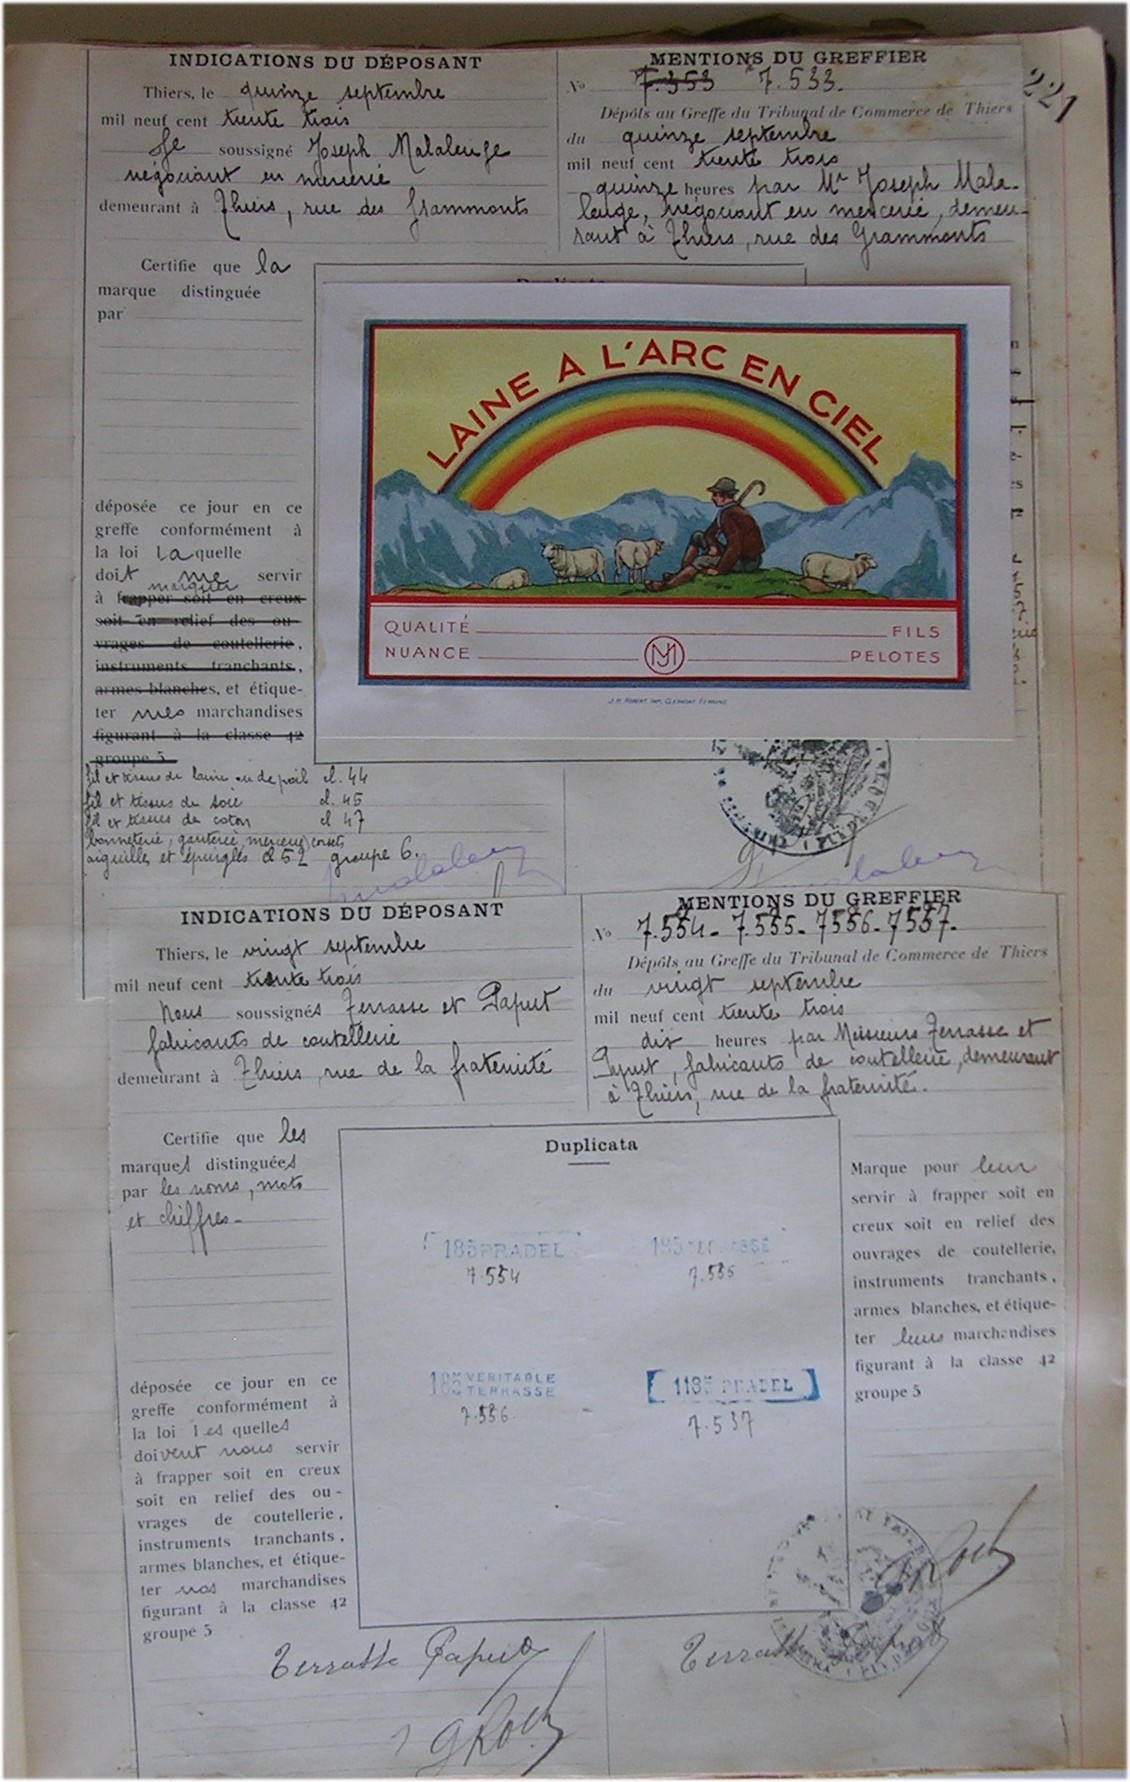 221
INDICATIONS DU DÉPOSANT
Thiers, le quinze septembre
mil neuf cent trente trois
Je soussigné Joseph Malaleuge
négociant en mercerie
demeurant à Thiers, rue des Grammonts
MENTIONS DU GREFFIER
No 7.353 7.533.
Dépôts au Greffe du Tribunal de Commerce de Thiers
du quinze septembre
mil neuf cent trente trois
quinze heures par Mr Joseph Mala-
leuge, négociant en mercerie, demeu-
rant à Thiers, rue des Grammonts
Certifie que la
marque distinguée
par
déposée ce jour en ce
greffe conformément à
la loi laquelle
doit me servir
marquer
à frapper soit en creux
soit en relief des ou-
vrages de coutellerie,
instruments tranchants,
armes blanches, et étique-
ter mes marchandises
figurant à la classe 42
groupe 5
fil et tissus de laine ou de poil cl. 44
fil et tissus de soie cl. 45
fil et tissus de coton cl 47
bonneterie, ganterie, mercerie, corsets
aiguilles et épingles cl 52 groupe 6.
Duplicata
LAINE A L'ARC EN CIEL
QUALITÉ FILS
NUANCE MJ PELOTES
J.H. ROBERT IMP. CLERMONT FERRAND
INDICATIONS DU DÉPOSANT
Thiers, le vingt septembre
mil neuf cent trente trois
Nous soussignés Terrasse et Paput
fabricants de coutellerie
demeurant à Thiers, rue de la fraternité
MENTIONS DU GREFFIER
No 7.554- 7.555- 7556- 7557-
Dépôts au Greffe du Tribunal de Commerce de Thiers
du vingt septembre
mil neuf cent trente trois
dix heures par Messieurs Terrasse et
Paput, fabricants de coutellerie, demeurant
à Thiers, rue de la fraternité.
Certifie que les
marques distinguées
par les noms, mots
et chiffres-
déposée ce jour en ce
greffe conformément à
la loi lesquelles
doivent nous servir
à frapper soit en creux
soit en relief des ou-
vrages de coutellerie,
instruments tranchants,
armes blanches, et étique-
ter nos marchandises
figurant à la classe 42
groupe 5
Duplicata
185 PRADEL
7.554
185 TERRASSE
7.555
185 VERITABLE
TERRASSE
7.556
1185 PRADEL
7.537
Marque pour leur
servir à frapper soit en
creux soit en relief des
ouvrages de coutellerie,
instruments tranchants,
armes blanches, et étique-
ter leurs marchandises
figurant à la classe 42
groupe 5
Terrasse Paput
Terrasse